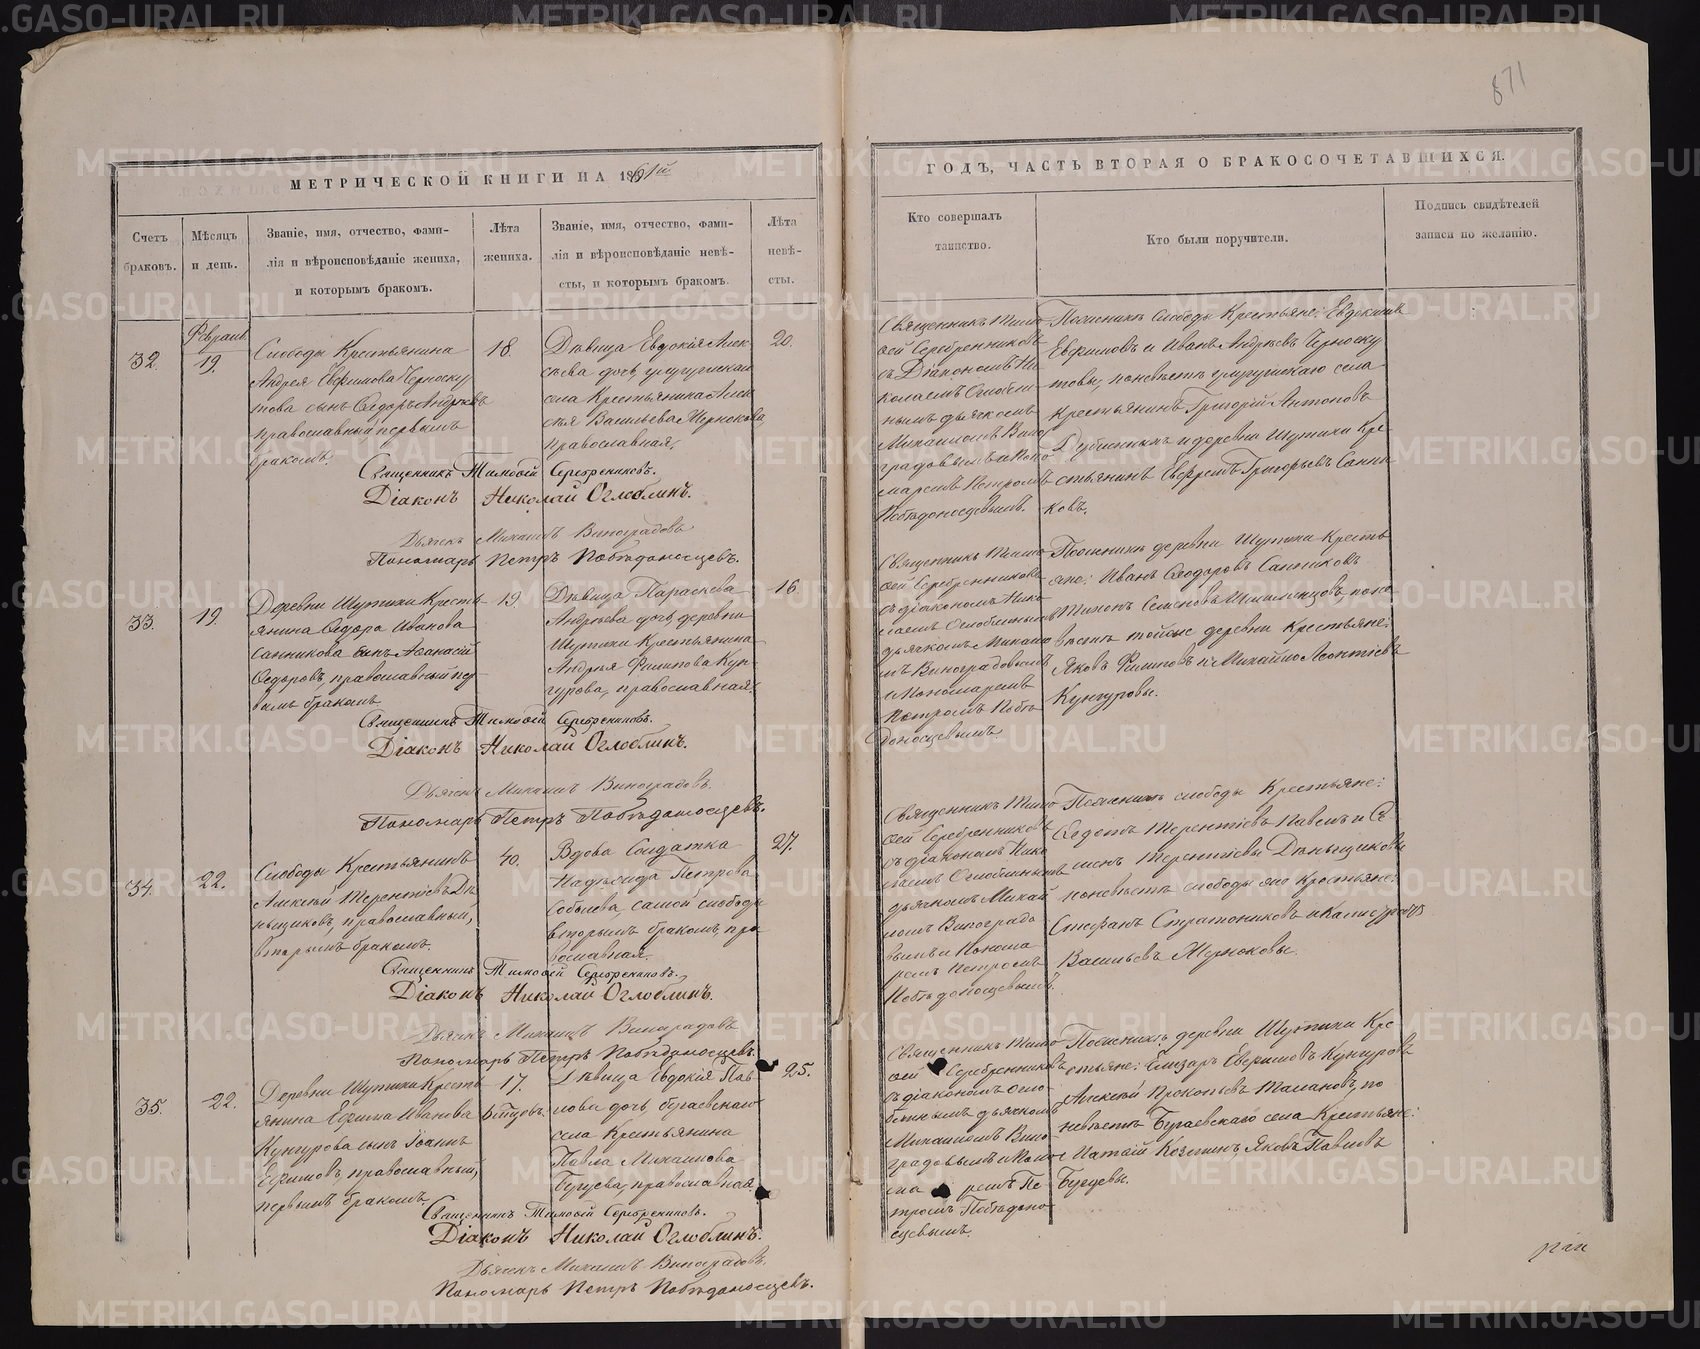 871
МЕТРИЧЕСКОЙ КНИГИ НА 1861й
ГОДЪ, ЧАСТЬ ВТОРАЯ О БРАКОСОЧЕТАВШИХСЯ.
Счетъ
браковъ.
Мѣсяцъ
и день.
Званіе, имя, отчество, фами-
лія и вѣроисповѣданіе жениха,
и которымъ бракомъ.
Лѣта
жениха.
Званіе, имя, отчество, фами-
лія и вѣроисповѣданіе невѣ-
сты, и которымъ бракомъ.
Лѣта
невѣ-
сты.
Кто совершалъ
таинство.
Кто были поручители.
Подпись свидѣтелей
записи по желанію.
32.
Февраля
19.
Слободы Крестьянина
Андрея Евфимова Черноску
това сынъ Ѳедоръ Андреевъ
православный первымъ
бракомъ.
18.
Дѣвица Евдокія Алек
сѣева дочь
села Крестьянина Алек
сѣя Васильева Чернокова,
православная,
20.
Священникъ Тимо
ѳей Серебренниковъ
съ Діакономъ Ни
колаемъ Оглобли
нымъ дьячкомъ
Михаиломъ Вино
градовымъ и Поно
маремъ Петромъ
Побѣдоносцевымъ.
По женихѣ слободы Крестьяне: Евдокимъ
Евфимовъ и Иванъ Андреевъ Черноску
товы, по невѣстѣ села
Крестьянинъ Григорій Антоновъ
и деревни Шутихи Кре
стьянинъ Евфремъ Григорьевъ Санни
ковъ.
Священникъ Тимоѳей Серебрениковъ.
Діаконъ Николай Оглоблинъ.
Дьячекъ Михаилъ Виноградовъ
Пономарь Петръ Побѣдоносцевъ.
33.
19.
Деревни Шутихи Кресть
янина Ѳедора Иванова
Санникова сынъ Аѳанасій
Ѳедоровъ, православный пер
вымъ бракомъ
19
Дѣвица Параскева
Андреева дочь деревни
Шутихи Крестьянина
Андрея Филипова Кун
гурова, православная.
16.
Священникъ Тимо
ѳей Серебренниковъ
съ діакономъ Нико
лаемъ Оглоблинымъ
дьячкомъ Михаило
мъ Виноградовымъ
и Пономаремъ
Петромъ Побѣ
доносцевымъ.
По женихѣ деревни Шутихи Кресть
яне: Иванъ Ѳеодоровъ Санниковъ
Тихонъ Семеновъ по не
вѣстѣ тойже деревни Крестьяне:
Яковъ Филиповъ и Михайло Леонтіевъ
Кунгуровы.
Священникъ Тимоѳей Серебрениковъ.
Діаконъ Николай Оглоблинъ.
Дьячекъ Михаилъ Виноградовъ.
Пономарь Петръ Побѣдоносцевъ.
34.
22.
Слободы Крестьянинъ
Алексѣй Терентіевъ Де
ньщиковъ, православный,
вторымъ бракомъ.
40.
Вдова Солдатка
Надѣжда Петрова
Соболева, самой слободы
вторымъ бракомъ, пра
вославная.
27.
Священникъ Тимо
ѳей Серебренниковъ
съ діакономъ Нико
лаемъ Оглоблинымъ
дьячкомъ Михаи
ломъ Виноградо
вымъ и Понома
ремъ Петромъ
Побѣдоносцевымъ.
По женихѣ слободы Крестьяне:
Ѳедотъ Терентіевъ Павелъ и Се
менъ Терентіевы Деньщиковы
по невѣстѣ слободы Крестьяне:
Стефанъ Стратониковъ и
Васильевъ Черноковы.
Священникъ Тимоѳей Серебрениковъ.
Діаконъ Николай Оглоблинъ.
Дьячекъ Михаилъ Виноградовъ
Пономарь Петръ Побѣдоносцевъ.
35.
22.
Деревни Шутихи Кресть
янина Ефима Иванова
Кунгурова сынъ Іоаннъ
Ефимовъ православный,
первымъ бракомъ.
17.
Дѣвица Евдокія Пав
лова дочь, бугаевскаго
села Крестьянина
Павла Михаилова
Бугуева, православная.
25.
Священникъ Тимо
ѳей Серебренниковъ
съ діакономъ Огло
блинымъ дьячкомъ
Михаиломъ Вино
градовымъ и Поно
ма ремъ Пе
тромъ Побѣдоно
сцевымъ.
По женихѣ деревни Шутихи Кре
стьяне: Елизаръ Евфимовъ Кунгуровъ
Алексѣй Прокопіевъ Талановъ, по
невѣстѣ Бугаевскаго села Крестьяне:
Ипатій Козминъ, Яковъ Павловъ
Бугуевы.
Священникъ Тимоѳей Серебрениковъ.
Діаконъ Николай Оглоблинъ.
Дьячекъ Михаилъ Виноградовъ.
Пономарь Петръ Побѣдоносцевъ.
METRIKI.GASO-URAL.RU